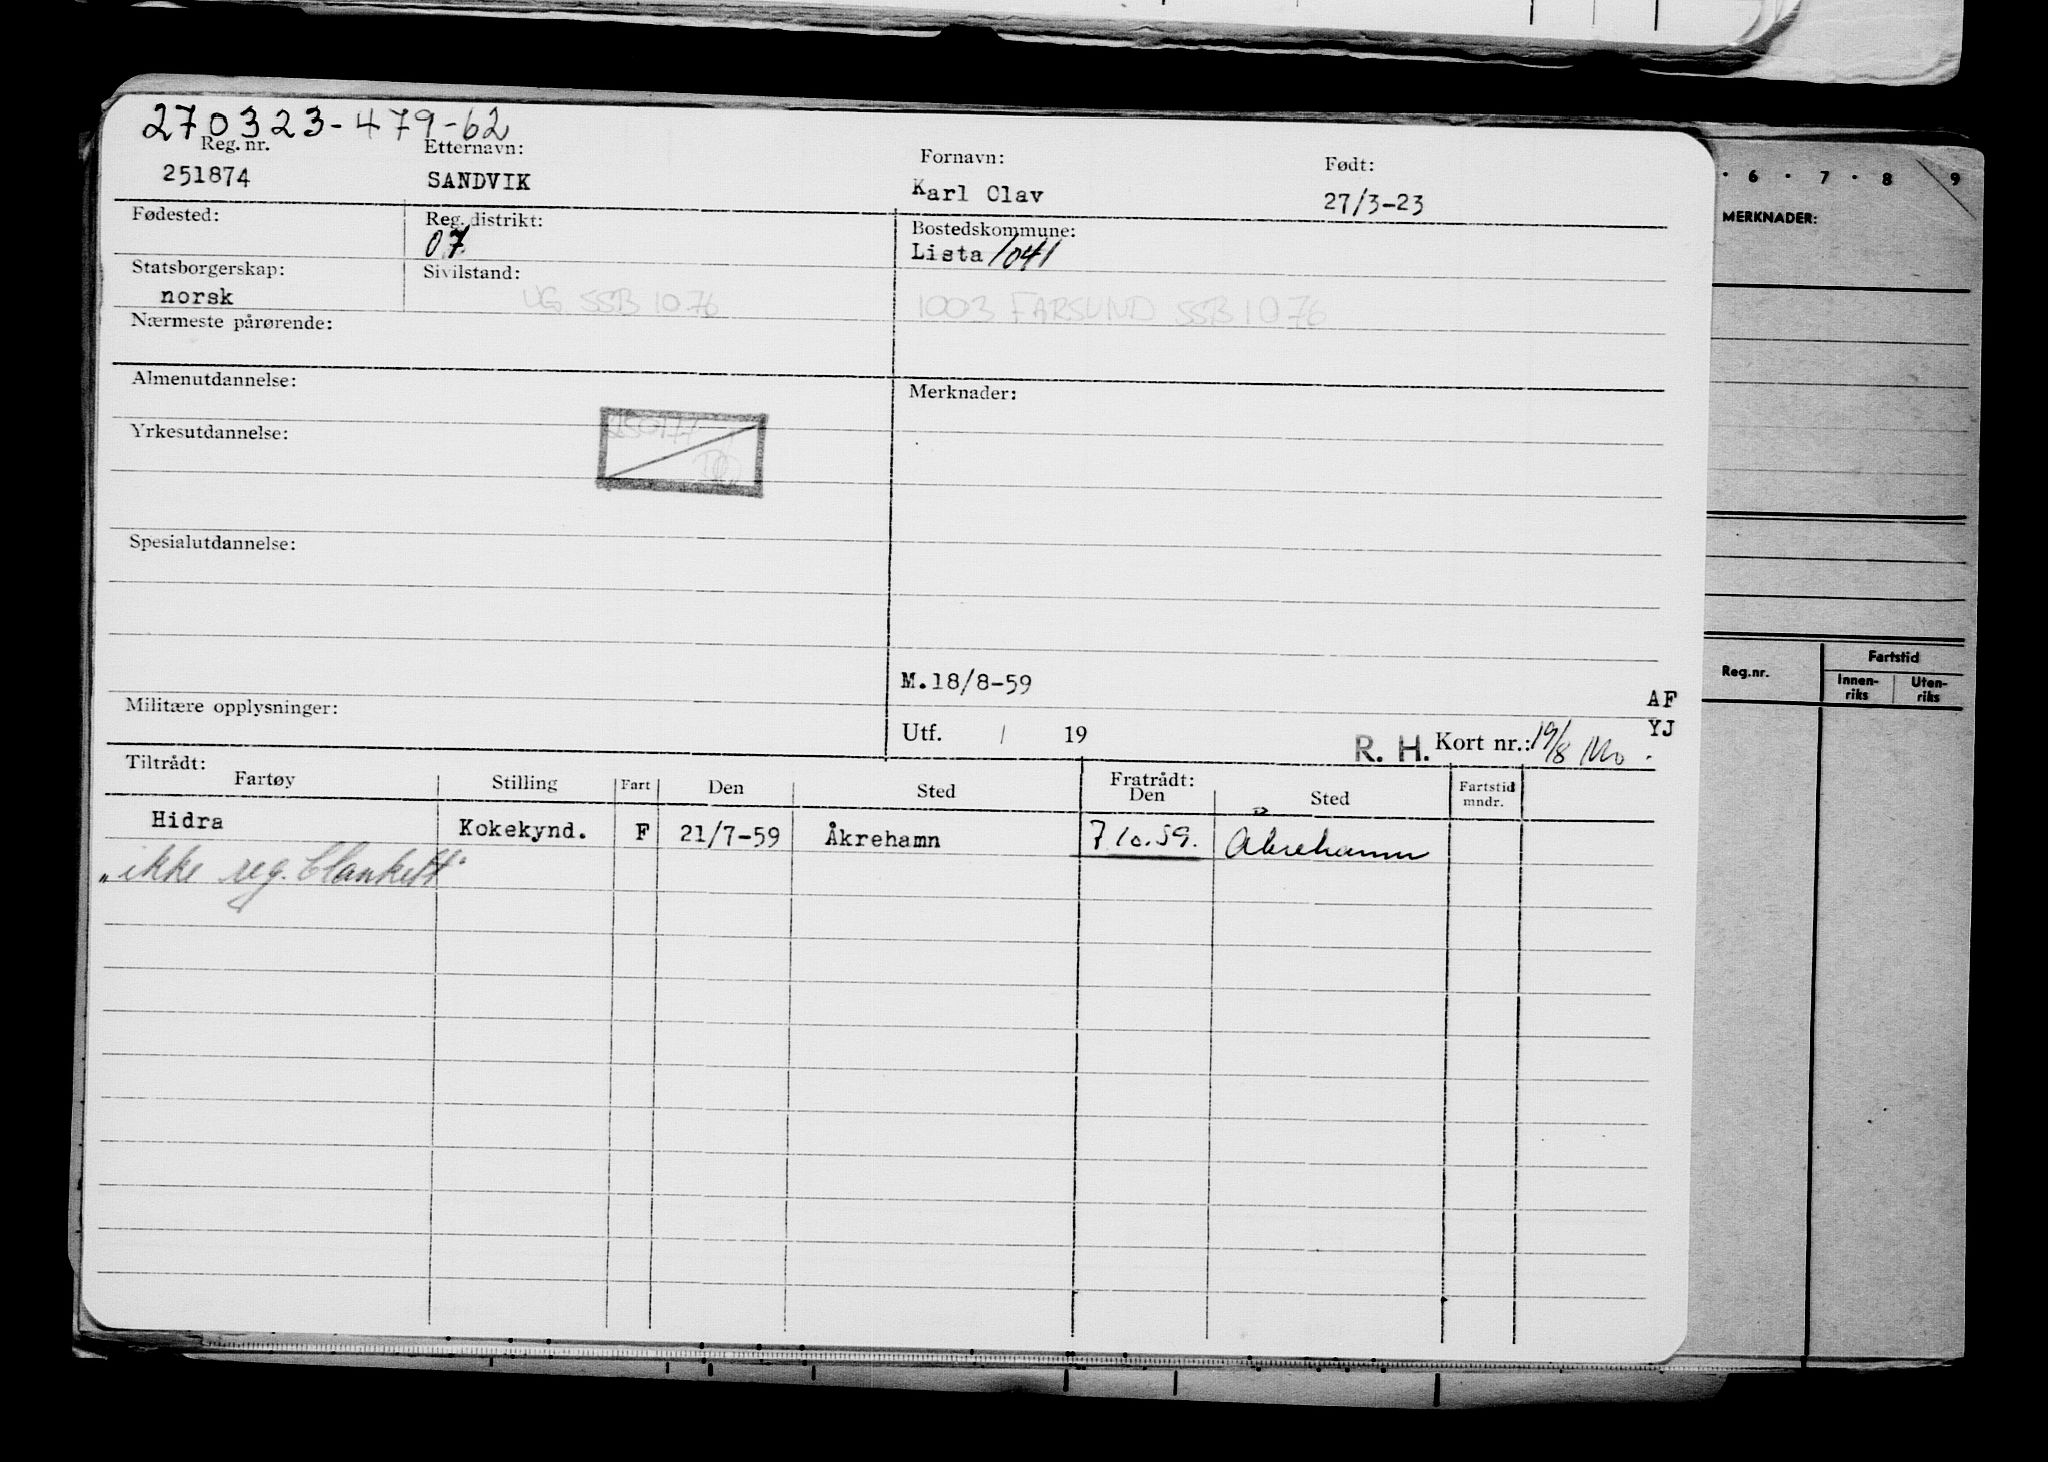 270323-479-62
Reg. nr. Etternavn: Fornavn: Født:
251874 SANDVIK Karl Olav 27/3-23
Fødested: Reg. distrikt: Bostedskommune:
07 Lista 1041
Statsborgerskap: Sivilstand:
norsk UG SSB 10.76 1003 FARSUND SSB 10 76
Nærmeste pårørende:
Almenutdannelse: Merknader:
Yrkesutdannelse:
Spesialutdannelse:
M.18/8-59
AF
Militære opplysninger:
Utf. / 19 R. H. Kort nr.: 19/8 YJ
Tiltrådt: Fratrådt:
Fartøy Stilling Fart Den Sted Den Sted Fartstid mndr.
Hidra Kokekynd. F 21/7-59 Åkrehamn 7 10.59. Åkrehamn
"ikke reg. blankett"
· 6 · 7 · 8 9
MERKNADER:
Reg.nr. Fartstid
Innen-riks Uten-riks